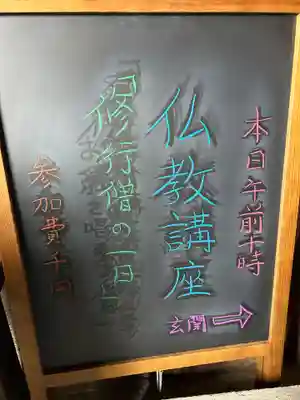 本日午前十時
仏教講座
「修行僧の一日」
参加費千円
玄関→